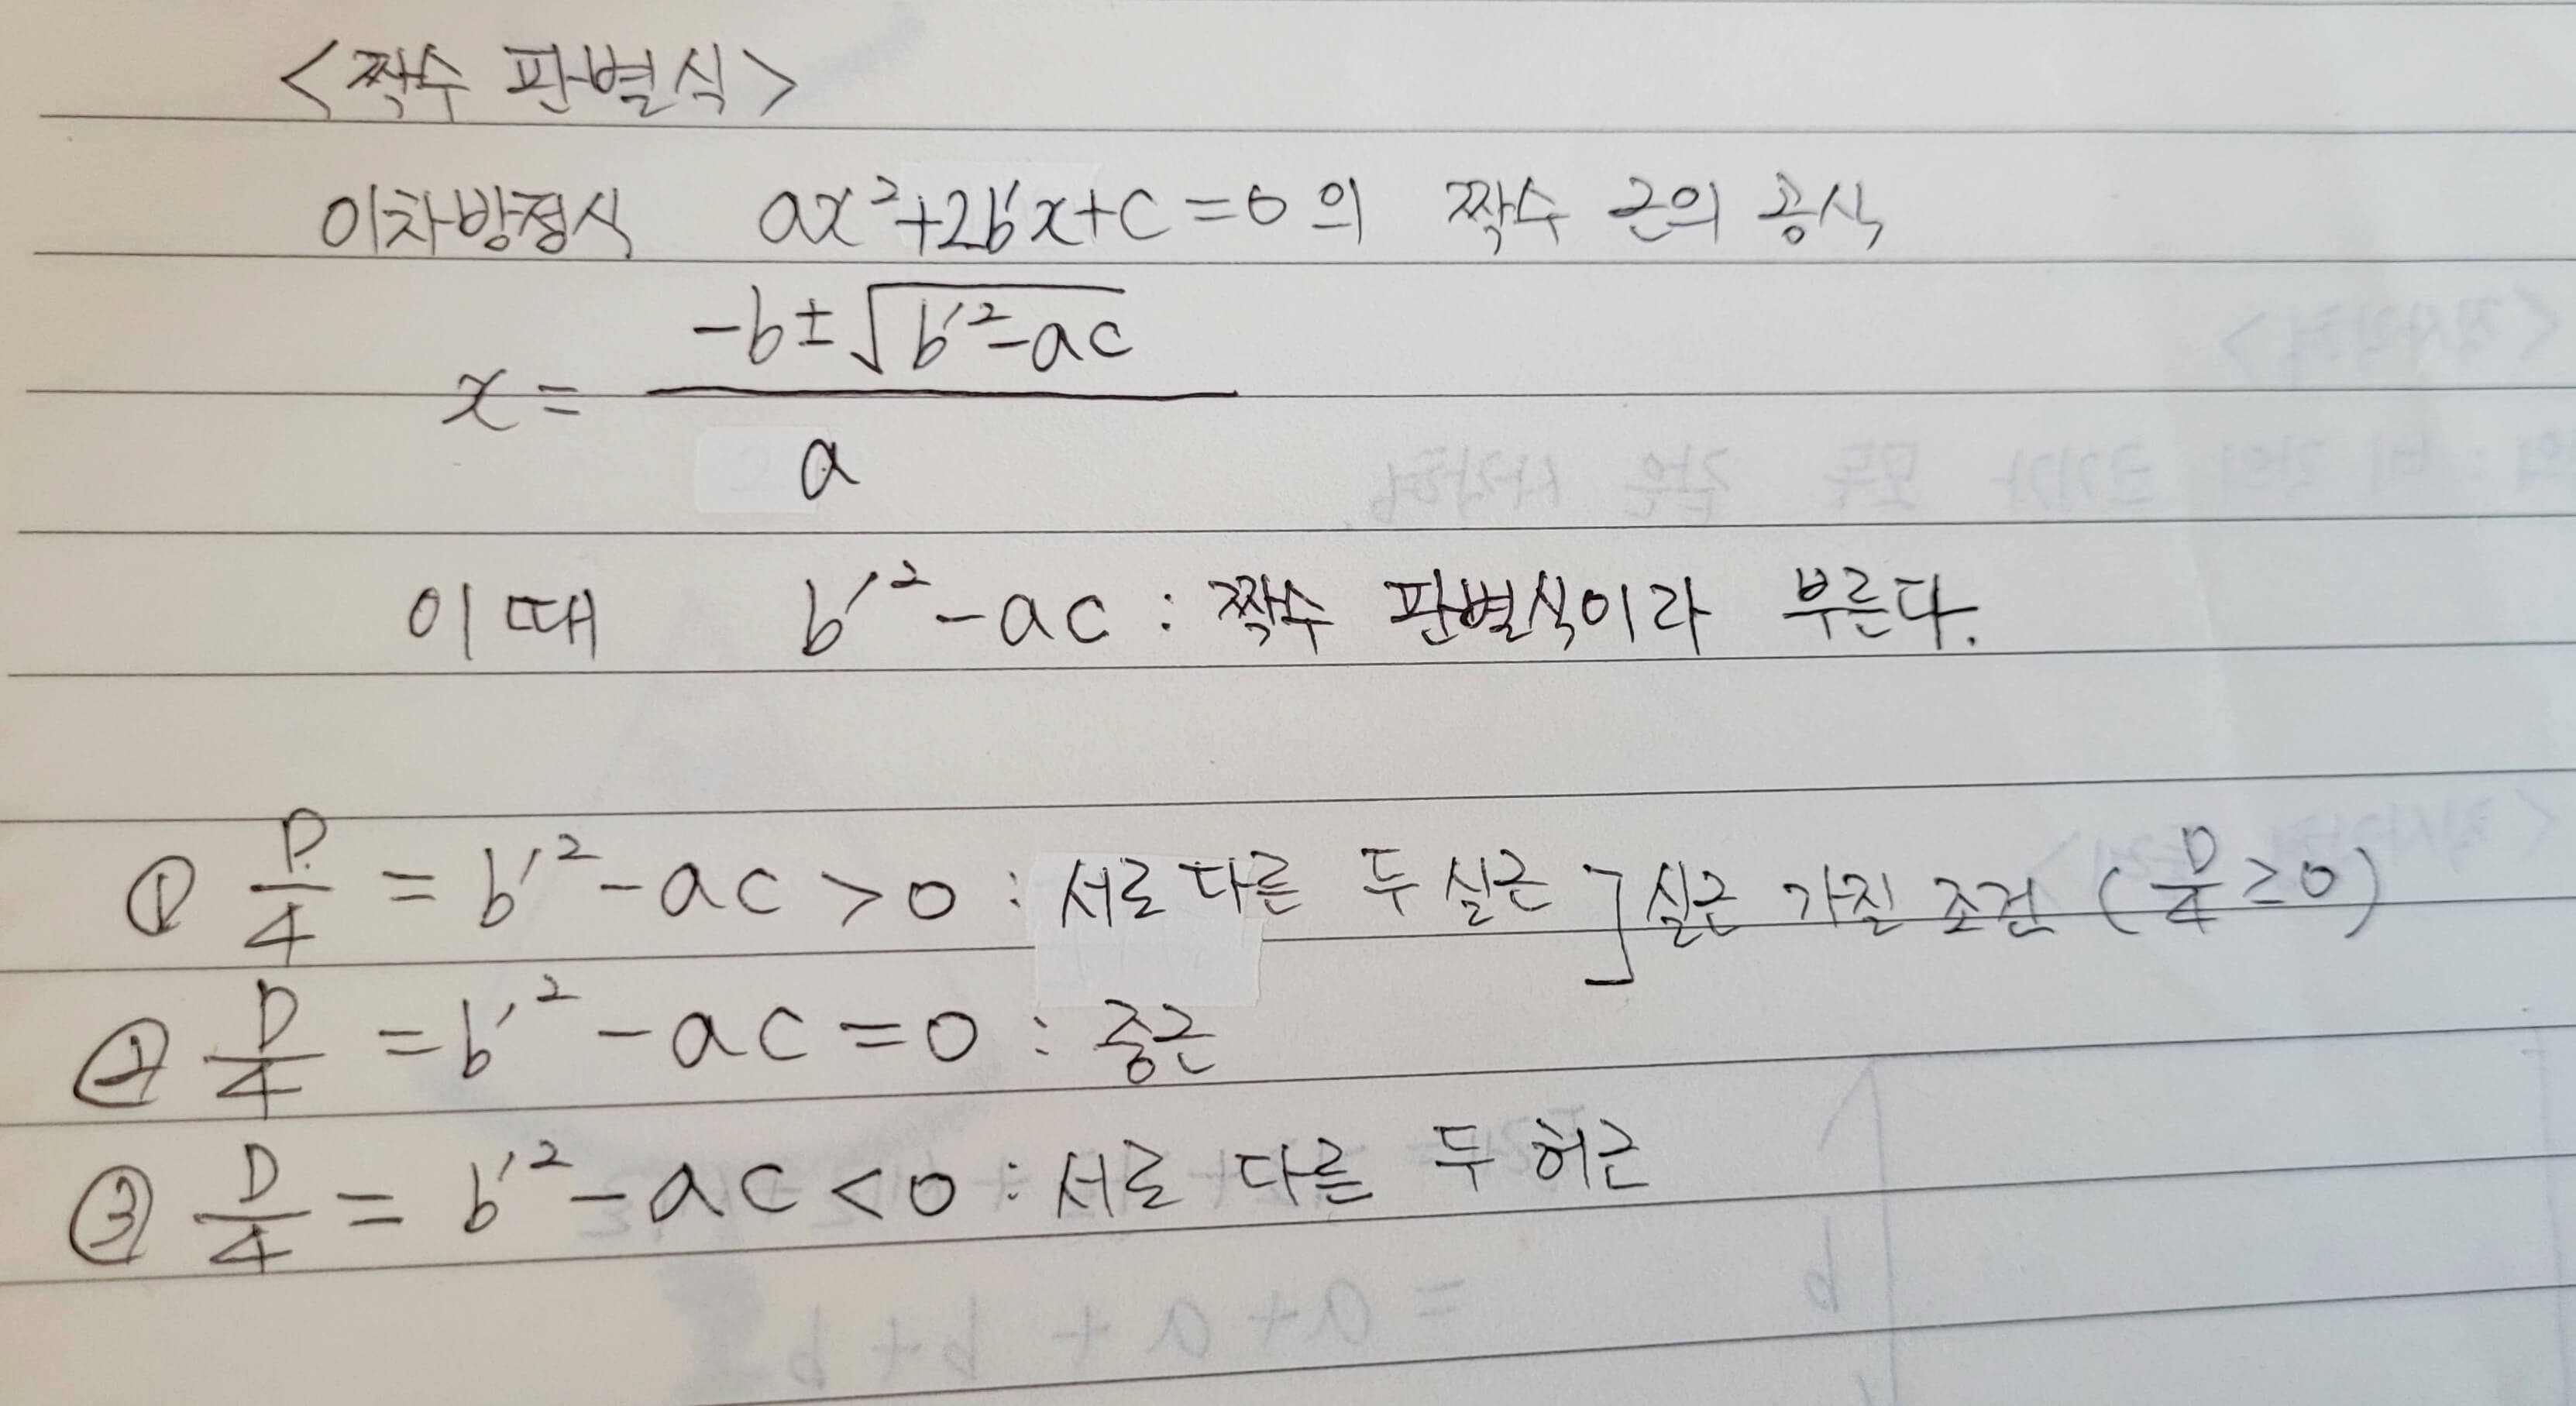 <짝수 판별식>
이차방정식 ax²+2b'x+c=0의 짝수 근의 공식
x = (-b±√(b'²-ac))/a
이때 b'²-ac : 짝수 판별식이라 부른다.
① D/4 = b'²-ac>0 : 서로 다른 두 실근 ] 실근 가질 조건 (D/4≥0)
② D/4 = b'²-ac=0 : 중근
③ D/4 = b'²-ac<0 : 서로 다른 두 허근